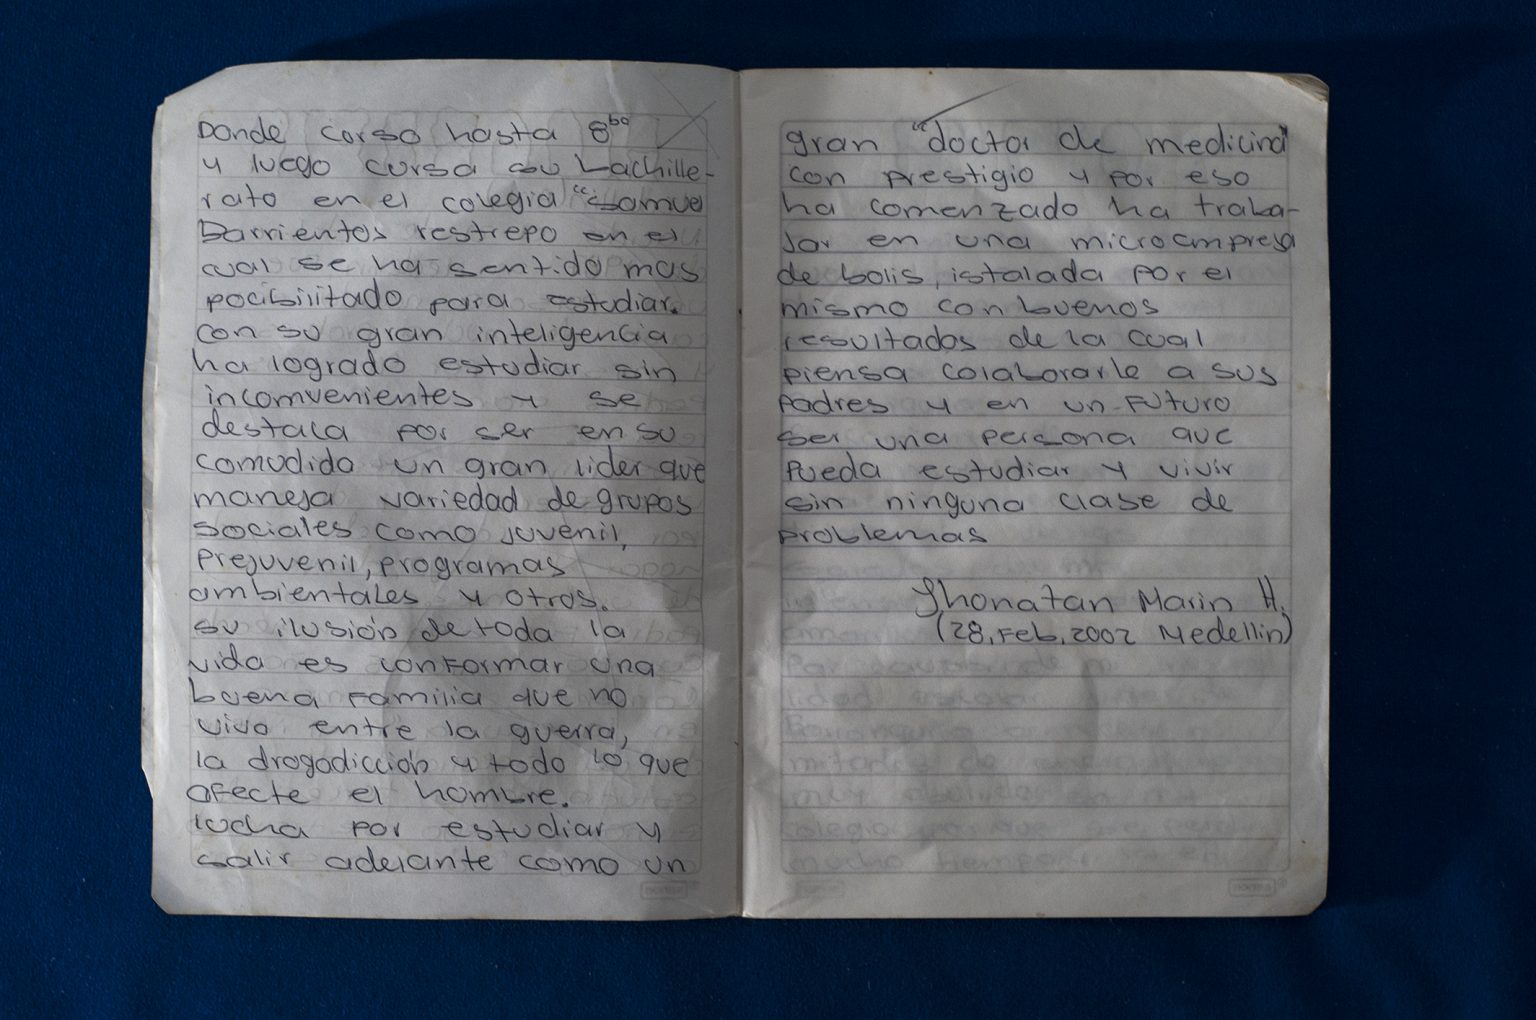 Donde curso hasta 8bo
y luego cursa su bachille-
rato en el colegio "Samuel
Barrientos restrepo en el
cual se ha sentido mas
pocibilitado para estudiar.
con su gran inteligencia
ha logrado estudiar sin
incomvenientes y se
destaca por ser en su
comudida un gran lider que
maneja variedad de grupos
sociales como juvenil,
Prejuvenil, programas
ambientales y otros.
su ilusión de toda la
vida es conformar una
buena familia que no
viva entre la guerra,
la drogadicción y todo lo que
afecte el hombre.
lucha por estudiar y
salir adelante como un
gran "doctor de medicina"
con prestigio y por eso
ha comenzado ha traba-
jar en una microempresa
de bolis, istalada por el
mismo con buenos
resultados de la cual
piensa colaborarle a sus
padres y en un futuro
ser una persona que
Pueda estudiar y vivir
sin ninguna clase de
problemas
Jhonatan Marin H.
(28, Feb, 2002 Medellin)